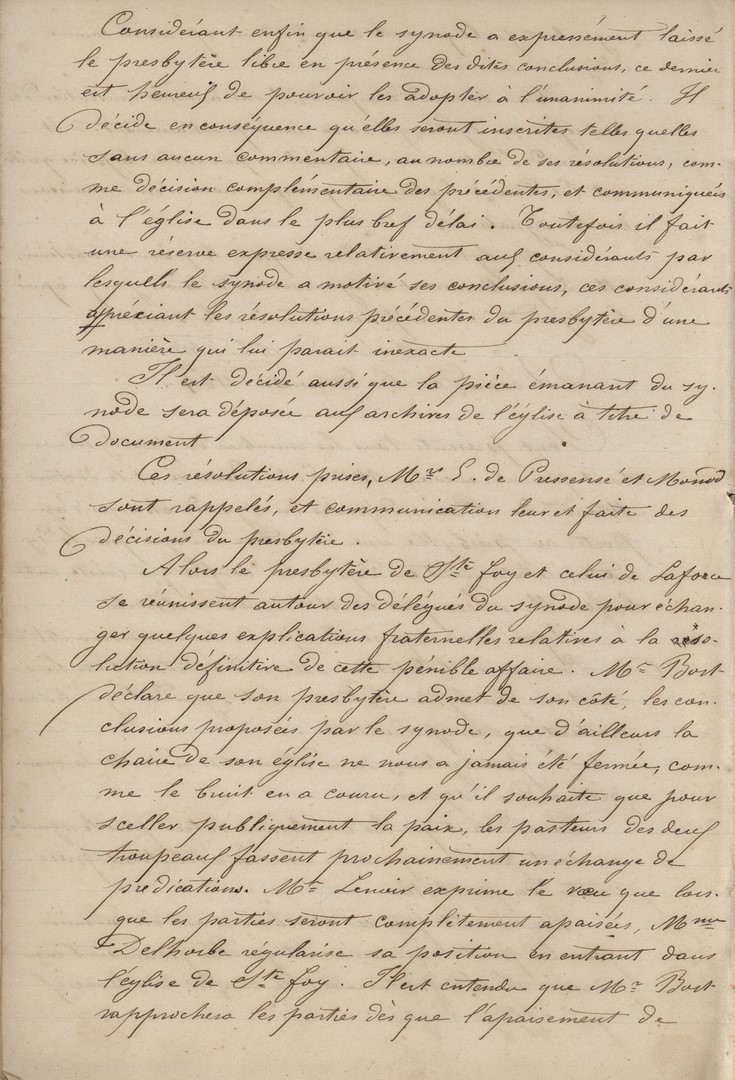 Considérant enfin que le synode a expressément laissé
le presbytère libre en présence des dites conclusions, ce dernier
est heureux de pouvoir les adopter à l'unanimité. Il
décide en conséquence qu'elles seront inscrites telles quelles
sans aucun commentaire, au nombre de ses résolutions, com-
me décision complémentaire des précédentes, et communiquées
à l'église dans le plus bref délai. Toutefois il fait
une réserve expresse relativement aux considérants par
lesquels le synode a motivé ses conclusions, ces considérants
appréciant les résolutions précédentes du presbytère d'une
manière qui lui parait inexacte
Il est décidé aussi que la pièce émanant du sy-
node sera déposée aux archives de l'église à titre de
document
Ces résolutions prises, Mrs E. de Pressensé et Monod
sont rappelés, et communication leur est faite des
décisions du presbytère.
Alors le presbytère de Ste foy et celui de Laforce
se réunissent autour des délégués du synode pour échan-
ger quelques explications fraternelles relatives à la réso-
lution définitive de cette pénible affaire. Mr Bost
déclare que son presbytère admet de son côté, les con-
clusions proposées par le synode, que d'ailleurs la
chaire de son église ne nous a jamais été fermée, com-
me le bruit en a couru, et qu'il souhaite que pour
sceller publiquement la paix, les pasteurs des deux
troupeaux fassent prochainement un échange de
prédications. Mr Lenoir exprime le vœu que lors-
que les parties seront complètement apaisées, Mme
Delhorbe régularise sa position en entrant dans
l'église de Ste foy. Il est entendu que Mr Bost
rapprochera les parties dès que l'apaisement de